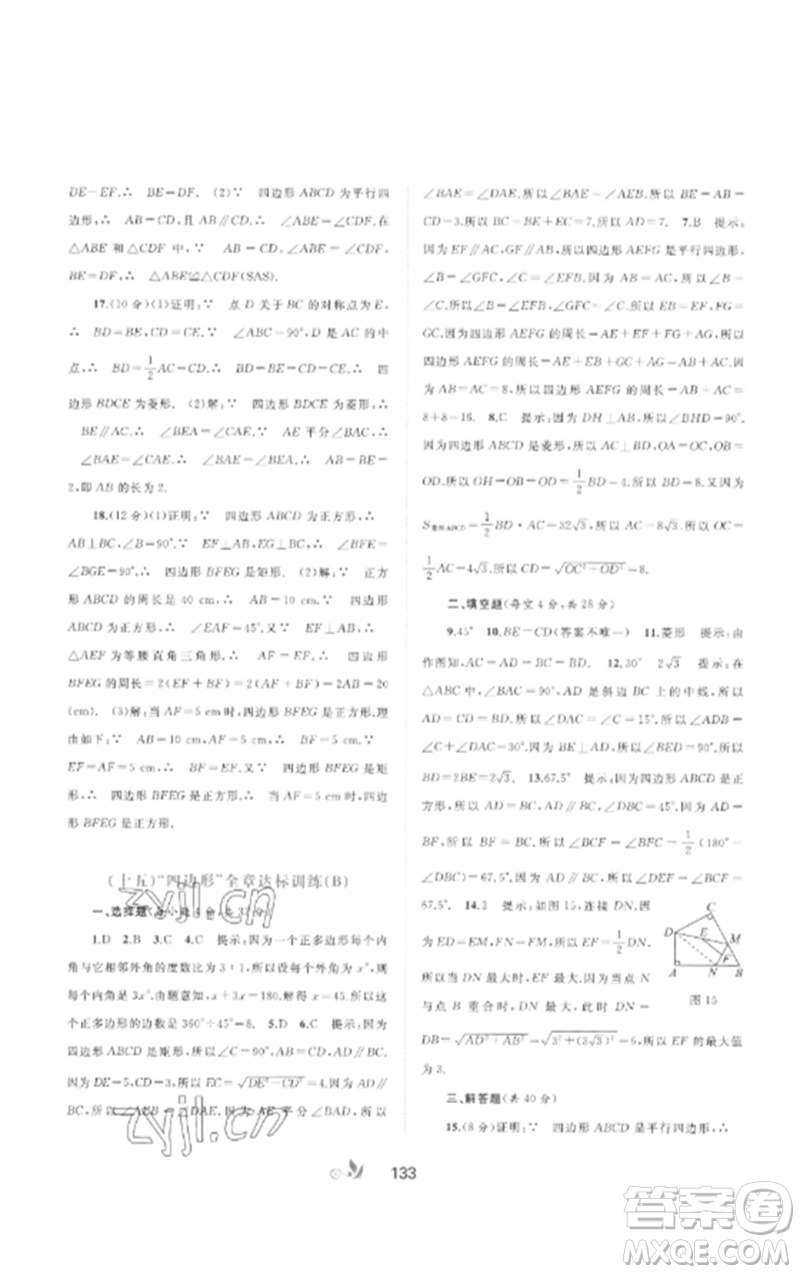 DE=EF,∴ BE=DF. (2)∵ 四边形 ABCD 为平行四
边形,∴ AB=CD,且 AB∥CD.∴ ∠ABE=∠CDF.在
△ABE 和△CDF 中,∵ AB=CD,∠ABE=∠CDF,
BE=DF,∴ △ABE≌△CDF(SAS).
17.(10 分)(1)证明:∵ 点 D 关于 BC 的对称点为 E,
∴ BD=BE,CD=CE.∵ ∠ABC=90°,D 是 AC 的中
点,∴ BD=1/2AC=CD.∴ BD=BE=CD=CE.∴ 四
边形 BDCE 为菱形. (2)解:∵ 四边形 BDCE 为菱形,∴
BE∥AC.∴ ∠BEA=∠CAE.∵ AE 平分∠BAC,∴
∠BAE=∠CAE.∴ ∠BAE=∠BEA.∴ AB=BE=
2,即 AB 的长为 2.
18.(12 分)(1)证明:∵ 四边形 ABCD 为正方形,∴
AB⊥BC,∠B=90°.∵ EF⊥AB,EG⊥BC,∴ ∠BFE=
∠BGE=90°.∴ 四边形 BFEG 是矩形. (2)解:∵ 正方
形 ABCD 的周长是 40 cm,∴ AB=10 cm.∵ 四边形
ABCD 为正方形,∴ ∠EAF=45°.∵ ∠AFE=90°,∴
△AEF 为等腰直角三角形.∴ AF=EF.∴ 四边形
BFEG 的周长=2(EF+BF)=2(AF+BF)=2AB=20
(cm). (3)解:当 AF=5 cm 时,四边形 BFEG 是正方形.理
由如下:∵ AB=10 cm,AF=5 cm,∴ BF=AB-AF=
5 cm.∵ AF=EF=5 cm.又∵ 四边形 BFEG 是矩
形,∴ 四边形 BFEG 是正方形.∴ 当 AF=5 cm 时,四边
形 BFEG 是正方形.
(十五)“四边形”全章达标训练(B)
一、选择题
1.D 2.B 3.C 4.C 提示:因为一个正多边形每个内
角与它相邻外角的度数比为 3∶1,所以设每个外角为 x°,则
每个内角为 3x°,由题意知,x+3x=180,解得 x=45.所以这
个正多边形的边数是 360°÷45°=8. 5.D 6.C 提示:因为
四边形 ABCD 是矩形,所以 AD=BC,CD=AB=3,∠C=90°.因
为 DE=5,CD=3,所以 EC=√(DE²-CD²)=4.因为 AD∥BC,所
以∠AEB=∠DAE.因为 AE 平分∠BAD,所以
∠BAE=∠DAE.所以∠BAE=∠AEB.所以 BE=AB=
CD=3.所以 BC=BE+EC=7.所以 AD=7. 7.B 提示:
因为 EF∥AC,GF∥AB,所以四边形 AEFG 是平行四边形,
∠B=∠GFC,∠C=∠EFB.因为 AB=AC,所以∠B=
∠C.所以∠B=∠EFB,∠GFC=∠C.所以 EB=EF,FG=
GC.因为四边形 AEFG 的周长=AE+EF+FG+AG,所以
四边形 AEFG 的周长=AE+EB+GC+AG=AB+AC.因
为 AB=AC=8,所以四边形 AEFG 的周长=AB+AC=
8+8=16. 8.C 提示:因为 DH⊥AB,所以∠BHD=90°.
因为四边形 ABCD 是菱形,所以 AC⊥BD,OA=OC,OB=
OD.所以 OH=OB=OD=1/2BD=4.所以 BD=8.又因为
S菱形ABCD=1/2BD·AC=32√3,所以 AC=8√3.所以 OC=
1/2AC=4√3.所以 CD=√(OC²+OD²)=8.
二、填空题(每空 4 分,共 28 分)
9.45° 10.BE=CD(答案不唯一) 11.菱形 提示:由
作图知,AC=AD=BC=BD. 12.30° 2√3 提示:在
△ABC 中,∠BAC=90°,AD 是斜边 BC 上的中线,所以
AD=BD=CD.所以∠DAC=∠C=15°.所以∠ADB=
∠DAC+∠C=30°.因为 BE⊥AD,所以∠BED=90°.所以
BD=2BE=2√3. 13.67.5° 提示:因为四边形 ABCD 是正
方形,所以 AD=BC,AD∥BC,∠DBC=45°.因为 BF=
AD,所以 BF=BC.所以∠BCF=∠BFC=1/2(180°-
∠DBC)=67.5°.因为 AD∥BC,所以∠DEF=∠BCF=
67.5°. 14.3 提示:如图 15,连接 DN,因为
ED=EM,FN=FM,所以 EF=1/2DN.所以
当 DN 最大时,EF 最大.因为当点 N
与点 B 重合时,DN 最大,此时 DN=
DB=√(AD²+AB²)=√(3²+(3√3)²)=6,所以 EF 的最大值
为 3.
D C E M F A N B
图 15
三、解答题(共 40 分)
15.(8 分)证明:∵ 四边形 ABCD 是平行四边形,∴
133
zyjl.cn
zyjl.cn
答案圈
MXQE.COM